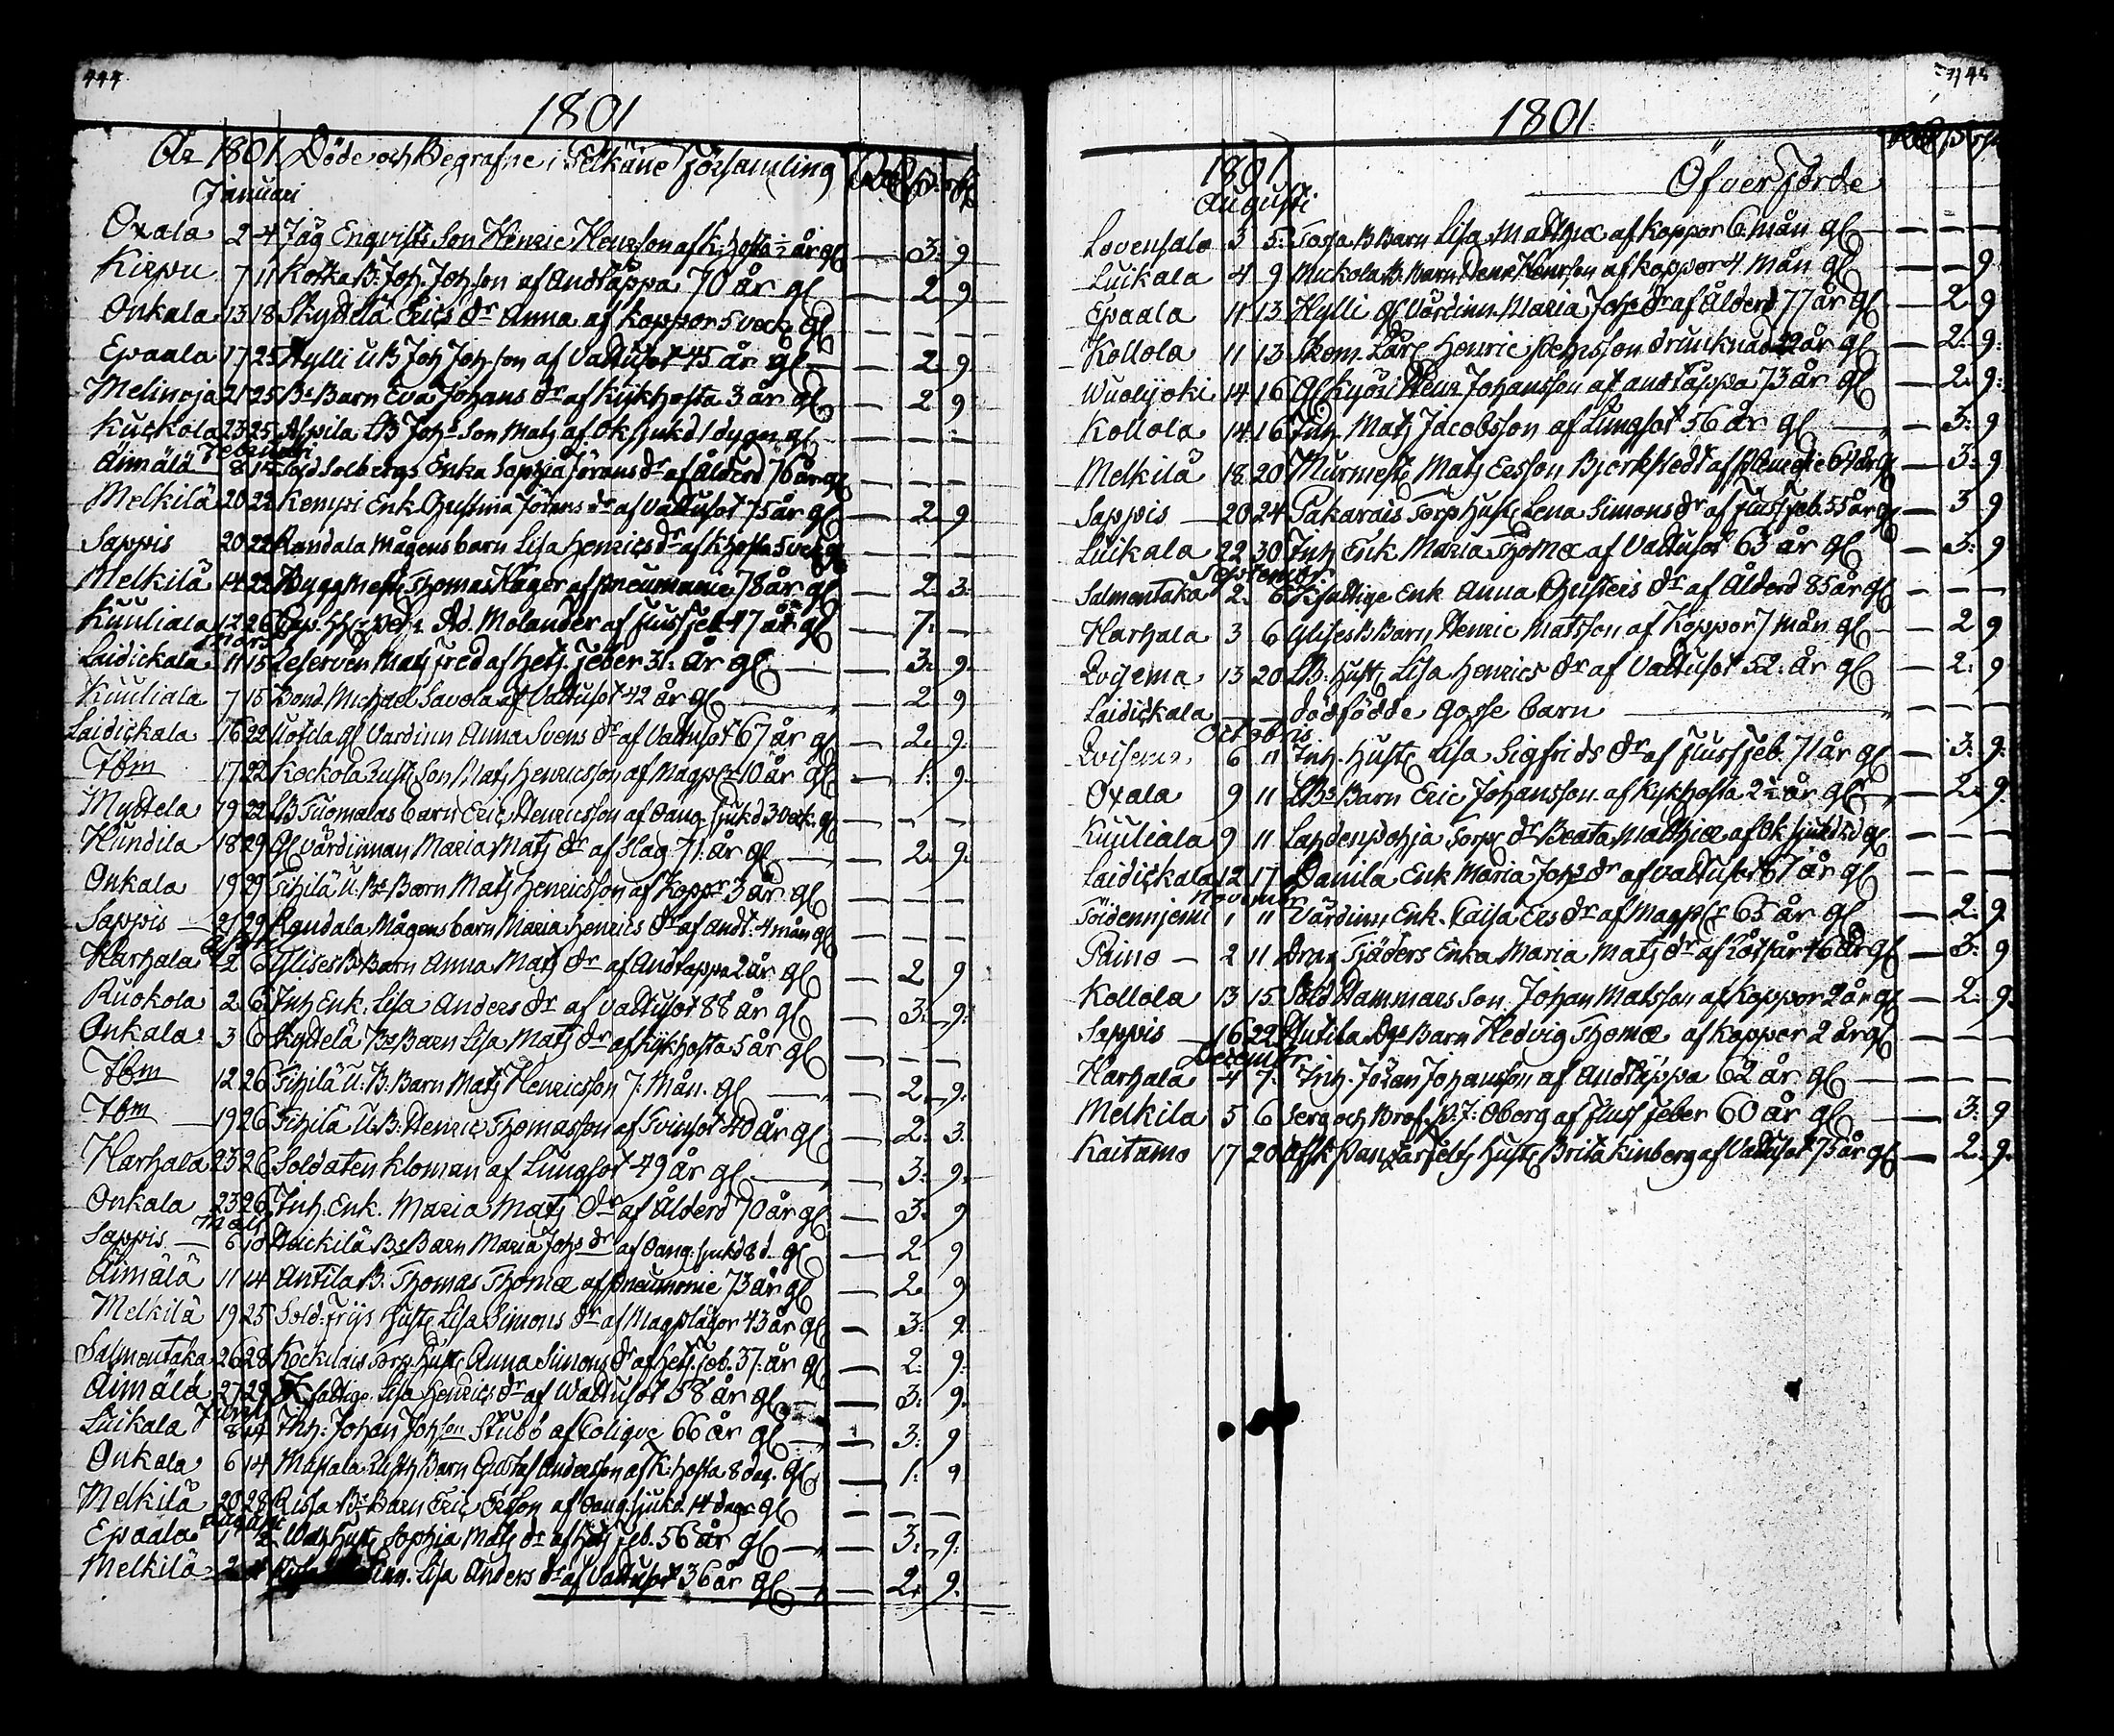 444
1801
År 1801. Döde och Begrafne i Pelkäne Församling
Januari
Oxala 2 4 Jäg Enqvists Son Henric Henrsson af K:hosta ½ år gl — 3: 9
Kirpu 7 11 Kotka B: Joh. Joh.son af Andtäppa 70 år gl — 2 9
Onkala 13 18 Skyttelä Erics dr Anna af Koppor 5 veck gl — — —
Epaala 17 25 Hylli U B Joh Joh.son af Vattusot 45 år gl — 2 9
Melinoja 21 25 Bs Barn Eva Johans dr af Kikhosta 3 år gl — 2 9
Kuckola 23 25 LB Johs Son Matz af Ok sjukd 1 dygn gl — — —
Februari
Äimälä 8 15 Sold Solbergs Enka Sophia Jörans dr af Ålderd 76 år gl — — —
Melkilä 20 22 Kemppi Enk Christina Jörans dr af Vattusot 75 år gl — 2 9
Sappis 20 22 Randala Mågens barn Lisa Henrics dr af K hosta 5 veck gl — — —
Melkilä 14 22 Byggmest Thomas Häger af pneumonie 78 år gl — 2 3:
Kuuliala 12 26 Cap. Ad. Molander af flussfeb 47 år gl — 7: —
Mars
Laidickala 11 15 Reserven Matz Fred af Hets. feber 31: år gl — 3: 9:
Kuuliala 7 15 Bond Michael Savola af Vattusot 42 år gl — 2 9
Laidickala 16 22 Uotila gl Värdinn Anna Svens dr af Vattusot 67 år gl — 2. 9.
Ibm 17 22 Kockola Rust Son Matz Henricsson af Magplr 10 år gl — 1: 9
Myttela 19 22 LB Tuomalas barn Eric Henricsson af Oang. sjukd 3 veck. gl — — —
Hundila 18 29 Gl värdinnan Maria Matz dr af Slag 71. år gl — 2. 9:
Onkala 19 29 Tihilä U. Bs Barn Matz Henricsson af Koppr 3 år gl — — —
Sappis — 21 29 Randala Mågens barn Maria Henrics dr af andt: 4 mån gl — — —
April
Harhala 2 6 Glises Bs Barn Anna Matz dr af Andtäppa 2 år gl — 2 9
Ruokola 2 6 Inh Enk. Lisa Anders dr af Vattusot 88 år gl — 3: 9:
Onkala 3 6 Skyttelä Bs Barn Lisa Matz dr af Kikhosta 5 år gl — — —
Ibm 12 26 Tihilä U: B. Barn Matz Henricsson 7: Mån. gl — 2. 9:
Ibm 19 26 Tihilä U.B: Henric Thomasson af Tvinsot 40 år gl — 2: 3.
Harhala 23 26 Soldaten Kloman af Lungsot 49 år gl — 3: 9:
Onkala 23 26 Inh. Enk. Maria Matz dr af Ålderd 70 år gl — 3: 9
Maij
Sappis — 6 10 Heickilä Bs Barn Maria Johs dr af Oang: sjukd 8 d. gl — 2 9
Äimälä 11 14 Antila B. Thomas Thomæ af pneumonie 73 år gl — 2. 9
Melkilä 19 25 Sold: Friis Hustr Lisa Simons dr af Magplågor 43 år gl — 3: 9.
Salmentaka 26 28 Kockilais Torp: Hustr Anna Simons dr af Hets. feb. 37: år gl — 2. 9:
Äimälä 27 29 Kfattige Lisa Henrics dr af Wattusot 58 år gl — 3: 9.
Junij
Luikala 8 14 Inh: Johan Johsson Stubb af Colique 66 år gl — 3: 9
Onkala 6 14 Barn Gustaf Andersson af K: hosta 8 dag. gl — 1: 9
Melkilä 20 28 Rissa Bs Barn Eric Ersson af Oang: sjukd. 14 dagr gl — — —
Augusti
Epaala 1 2 Hustr Sophia Matz dr af Hetz feb. 56 år gl — 3: 9:
Melkilä 2 Lisa Anders dr af Vattusot 36 år gl — 2. 9.
1801
1801
Augusti
Öfverförde
Lovensalo 3 5: B Barn Lisa Matthiæ af Koppor 6. mån gl — — —
Luikala 4 9 Muckola B: Barn Henr Henrsson af Koppor 4. Mån gl — — 9
Epaala 11 13 Hylli gl Värdinn. Maria Johs dr af Ålderd 77 år gl — 2: 9
Kollola 11 13 Skom. Lärl Henric drunknad 22 år gl — 2: 9:
Wuolijoki 14 16 Gl Henr Johansson af andtäppa 73 år gl — 2. 9:
Kollola 14 16 Inh. Matz Jacobsson af Lungsot 56 år gl — 3: 9
Melkilä 18 20 Murmest Matz Ersson Bjerkstedt af Pleuresie 64 år gl — 3: 9
Sappis — 20 24 Pakarais Torp Hustr Lena Simons dr af Fluss feb. 55 år gl — 3 9
Luikala 22 30 Inh Enk Maria Thomæ af Vattusot 63 år gl — 3: 9
September
Salmentaka 2. 6 Kfattige Enk Anna Christers dr af Ålderd 85 år gl — — —
Harhala 3 6 Glises B Barn Henric Matsson af Koppor 7 mån gl — 2 9
Qvisema 13 20 LB: Hustr Lisa Henrics dr af Vattusot 52: år gl — 2: 9
Laidickala — — dödfödde Gosse barn — — —
Octobris
Qvisema 6 11 Inh. Hustr Lisa Sigfrids dr af Fluss feb. 71 år gl — 3: 9:
Oxala 9 11 LBs Barn Eric Johansson af Kykhosta 2½ år gl — 2. 9.
Kuuliala 9 11 Lahdenpohja Torp dr Beata Mathiæ af Ok sjukd gl — — —
Laidickala 12 17 Danila Enk Maria Johs dr af Vattusot 67 år gl — — —
November
Töidenniemi 1 11 Värdinn Enk. Caisa Ers dr af Magplr 65 år gl — 2: 9.
Paino — 2 11 Drag Tjäders Enka Maria Matz dr af Rötsår 46 år gl — 3: 9
Kollola 13 15 Sold Hammars Son Johan Matsson af Koppor 2 år gl — 2: 9.
Sappis — 16 22 Hutila Barn Hedvig Thomæ af Koppor 2 år gl — — —
December
Harhala 4 7: Inh. Johan Johansson af Andtäppa 62 år gl — — —
Melkila 5 6 Serg och Prof. Öberg af Fluss feber 60 år gl — 3: 9
Kaitamo 17 20 Hustr Brita Kinberg af Vattusot 75 år gl — 2. 9.